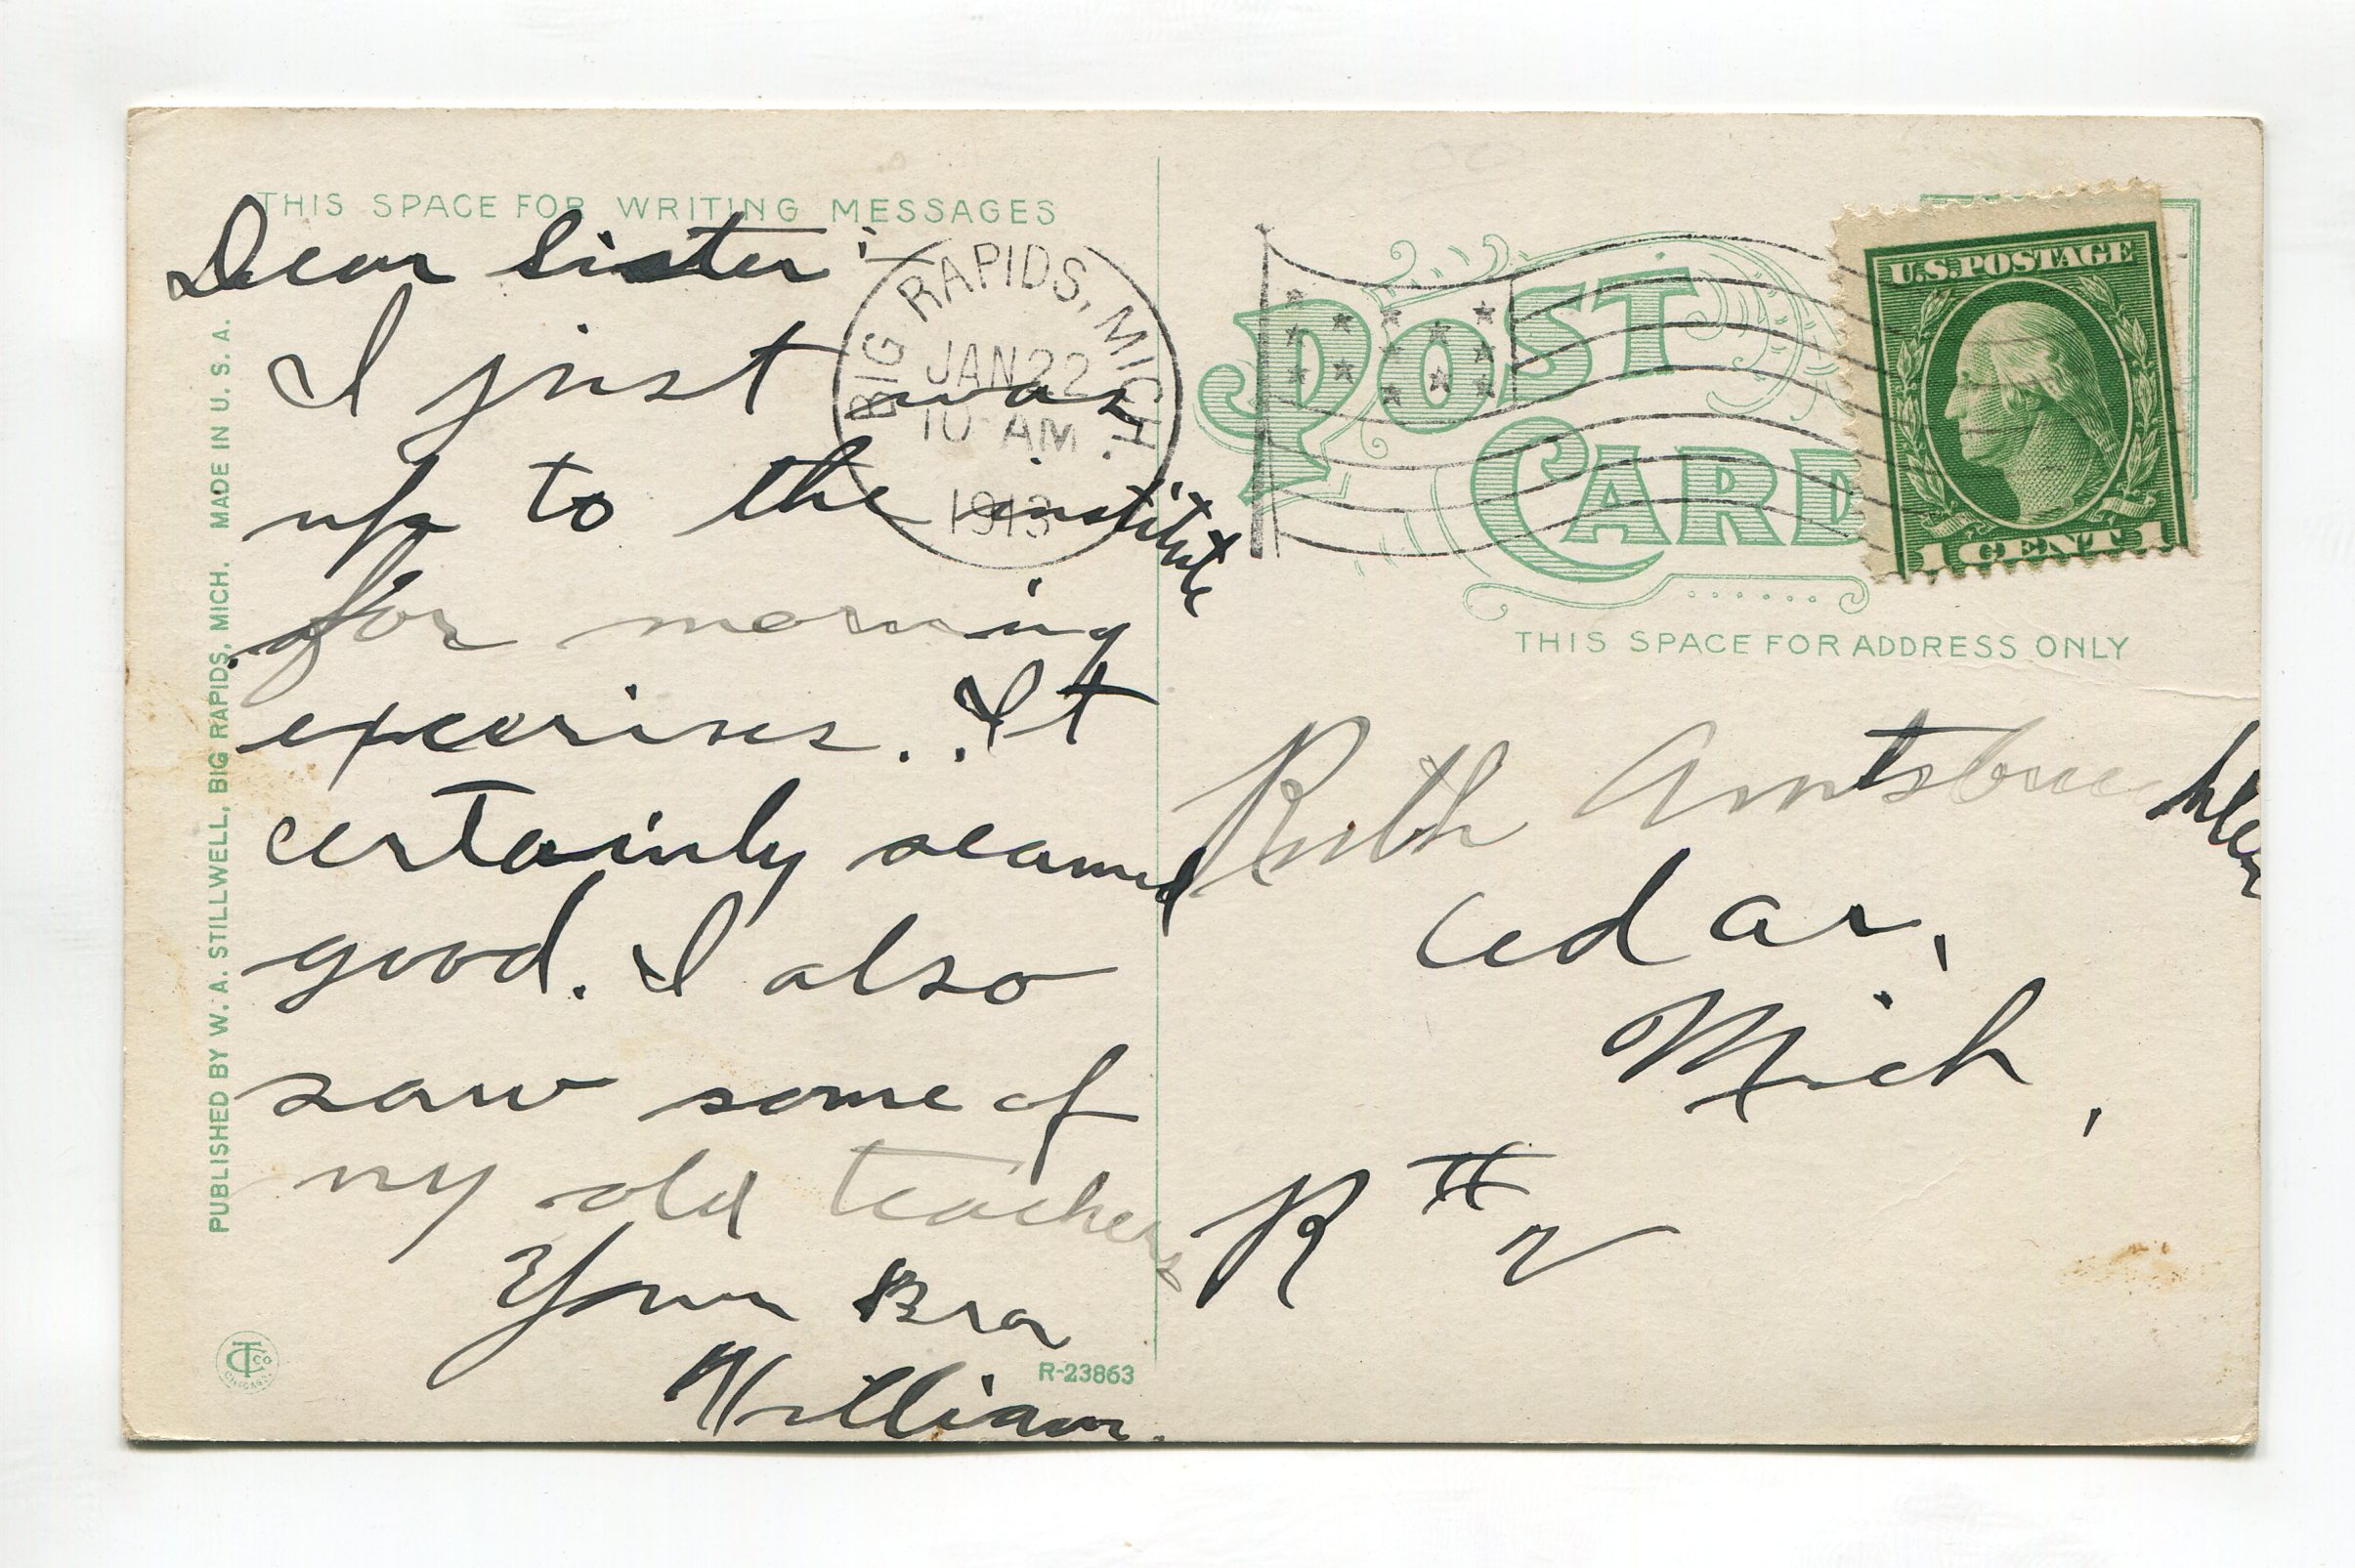 THIS SPACE FOR WRITING MESSAGES
Dear Sister:
I just was
up to the institute
for morning
excerises. It
certainly seamed
good. I also
saw some of
my old teachers
Your Bro
William.
PUBLISHED BY W. A. STILLWELL, BIG RAPIDS, MICH. MADE IN U. S. A.
CTCO
CHICAGO
R-23863
BIG RAPIDS, MICH.
JAN 22
10 AM
1913
POST
CARD
U.S. POSTAGE
1 CENT 1
THIS SPACE FOR ADDRESS ONLY
Ruth Amtsbuechler
Cedar,
Mich,
R # 2